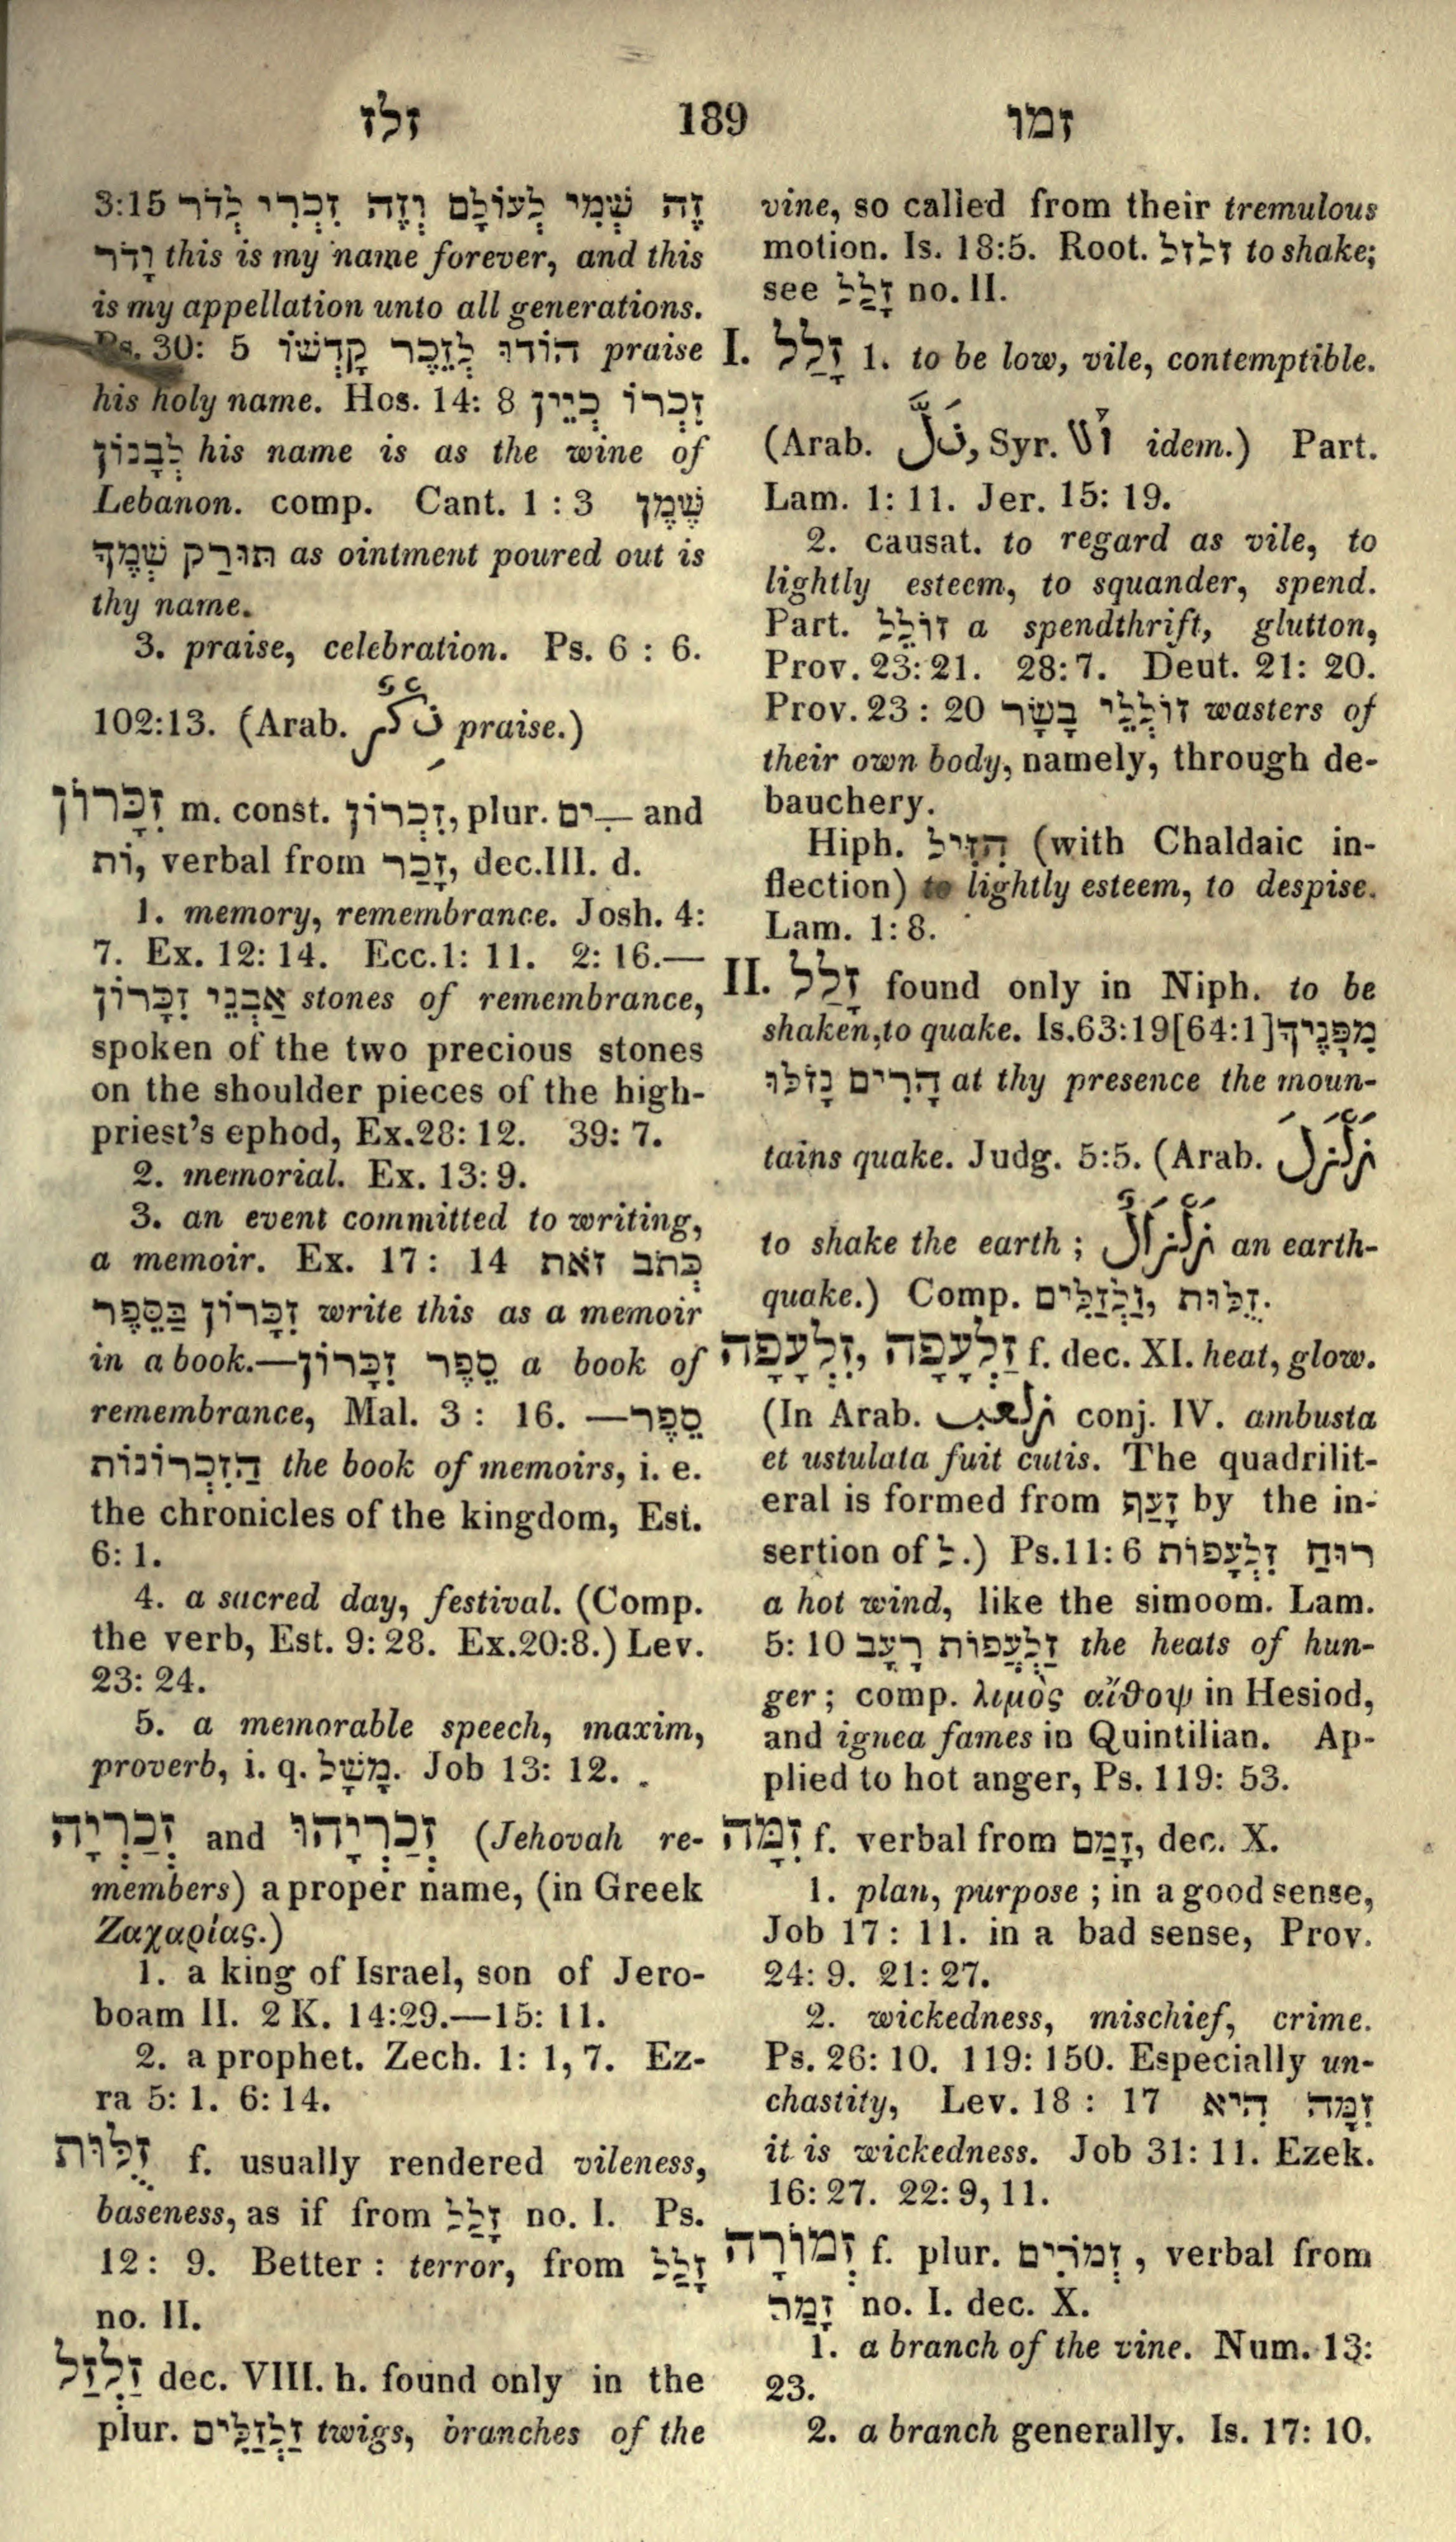 זלז 189 זמו
3:15 זֶה שְּׁמִי לְעוֹלָם וְזֶה זִכְרִי לְדֹר
וָדֹר this is my name forever, and this
is my appellation unto all generations.
Ps. 30: 5 הוֹדוּ לְזֵכֶר קָדְשׁוֹ praise
his holy name. Hos. 14: 8 זִכְרוֹ כְּיֵין
לְבָנוֹן his name is as the wine of
Lebanon. comp. Cant. 1 : 3 שֶׁמֶן
תּוּרַק שְׁמֶךָ as ointment poured out is
thy name.
3. praise, celebration. Ps. 6 : 6.
102:13. (Arab. ذِكْرٌ praise.)
זִכָּרוֹן m. const. זִכְרוֹן, plur. ־ִים and
וֹת, verbal from זָכַר, dec.III. d.
1. memory, remembrance. Josh. 4:
7. Ex. 12: 14. Ecc.1: 11. 2: 16.—
אַבְנֵי זִכָּרוֹן stones of remembrance,
spoken of the two precious stones
on the shoulder pieces of the high-
priest's ephod, Ex.28: 12. 39: 7.
2. memorial. Ex. 13: 9.
3. an event committed to writing,
a memoir. Ex. 17: 14 כְּתֹב זֹאת
זִכָּרוֹן בַּסֵּפֶר write this as a memoir
in a book.—סֵפֶר זִכָּרוֹן a book of
remembrance, Mal. 3 : 16. —סֵפֶר
הַזִּכְרוֹנוֹת the book of memoirs, i. e.
the chronicles of the kingdom, Est.
6: 1.
4. a sacred day, festival. (Comp.
the verb, Est. 9: 28. Ex.20:8.) Lev.
23: 24.
5. a memorable speech, maxim,
proverb, i. q. מָשָׁל. Job 13: 12.
זְכַרְיָה and זְכַרְיָהוּ (Jehovah re-
members) a proper name, (in Greek
Ζαχαρίας.)
1. a king of Israel, son of Jero-
boam II. 2 K. 14:29.—15: 11.
2. a prophet. Zech. 1: 1, 7. Ez-
ra 5: 1. 6: 14.
זֻלּוּת f. usually rendered vileness,
baseness, as if from זָלַל no. I. Ps.
12: 9. Better : terror, from זָלַל
no. II.
זַלְזַל dec. VIII. h. found only in the
plur. זַלְזַלִּים twigs, branches of the
vine, so called from their tremulous
motion. Is. 18:5. Root. זלזל to shake;
see זָלַל no. II.
I. זָלַל 1. to be low, vile, contemptible.
(Arab. ذَلَّ, Syr. ܙܠ idem.) Part.
Lam. 1: 11. Jer. 15: 19.
2. causat. to regard as vile, to
lightly esteem, to squander, spend.
Part. זוֹלֵל a spendthrift, glutton,
Prov. 23: 21. 28: 7. Deut. 21: 20.
Prov. 23 : 20 זוֹלְלֵי בָשָׂר wasters of
their own body, namely, through de-
bauchery.
Hiph. הִזִּיל (with Chaldaic in-
flection) to lightly esteem, to despise.
Lam. 1: 8.
II. זָלַל found only in Niph. to be
shaken, to quake. Is.63:19[64:1] מִפָּנֶיךָ
הָרִים נָזֹלּוּ at thy presence the moun-
tains quake. Judg. 5:5. (Arab. زَلْزَلَ
to shake the earth ; زَلْزَالٌ an earth-
quake.) Comp. זַלְזַלִּים, זֻלּוּת.
זִלְעָפָה, זַלְעָפָה f. dec. XI. heat, glow.
(In Arab. زلعب conj. IV. ambusta
et ustulata fuit cutis. The quadrilit-
eral is formed from זָעַף by the in-
sertion of ל.) Ps.11: 6 רוּחַ זִלְעָפוֹת
a hot wind, like the simoom. Lam.
5: 10 זַלְעֲפוֹת רָעָב the heats of hun-
ger ; comp. λιμὸς αἴθοψ in Hesiod,
and ignea fames in Quintilian. Ap-
plied to hot anger, Ps. 119: 53.
זִמָּה f. verbal from זָמַם, dec. X.
1. plan, purpose ; in a good sense,
Job 17: 11. in a bad sense, Prov.
24: 9. 21: 27.
2. wickedness, mischief, crime.
Ps. 26: 10. 119: 150. Especially un-
chastity, Lev. 18 : 17 זִמָּה הִיא
it is wickedness. Job 31: 11. Ezek.
16: 27. 22: 9, 11.
זְמוֹרָה f. plur. זְמֹרִים , verbal from
זָמַר no. I. dec. X.
1. a branch of the vine. Num. 13:
23.
2. a branch generally. Is. 17: 10.